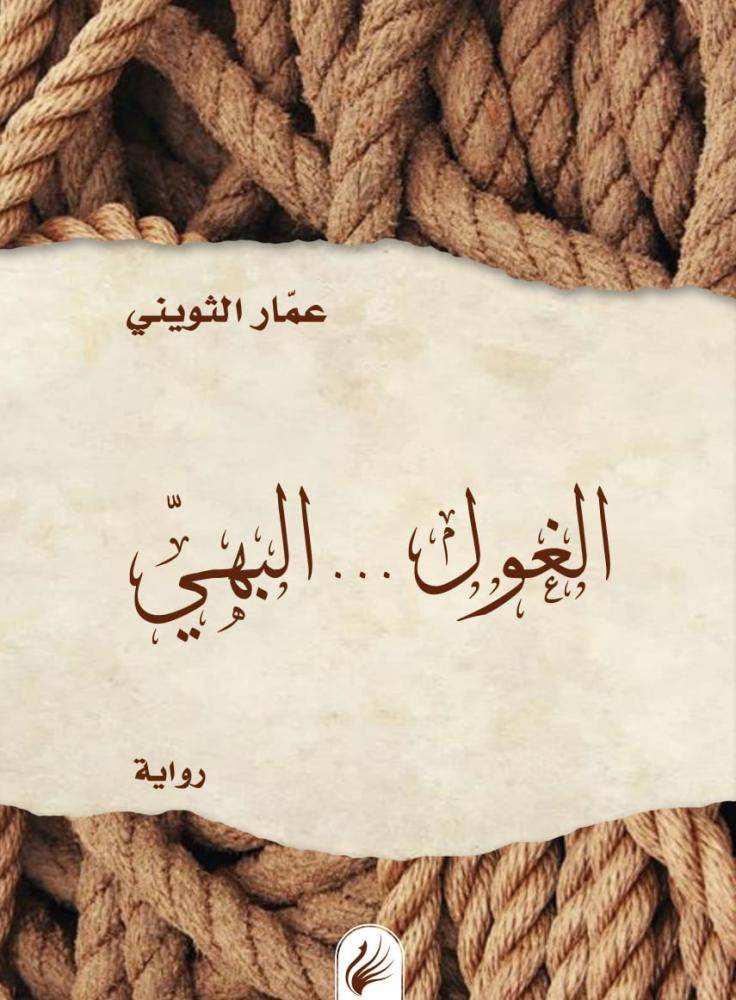 عمّار الثويني
الغول ... البهيّ
رواية